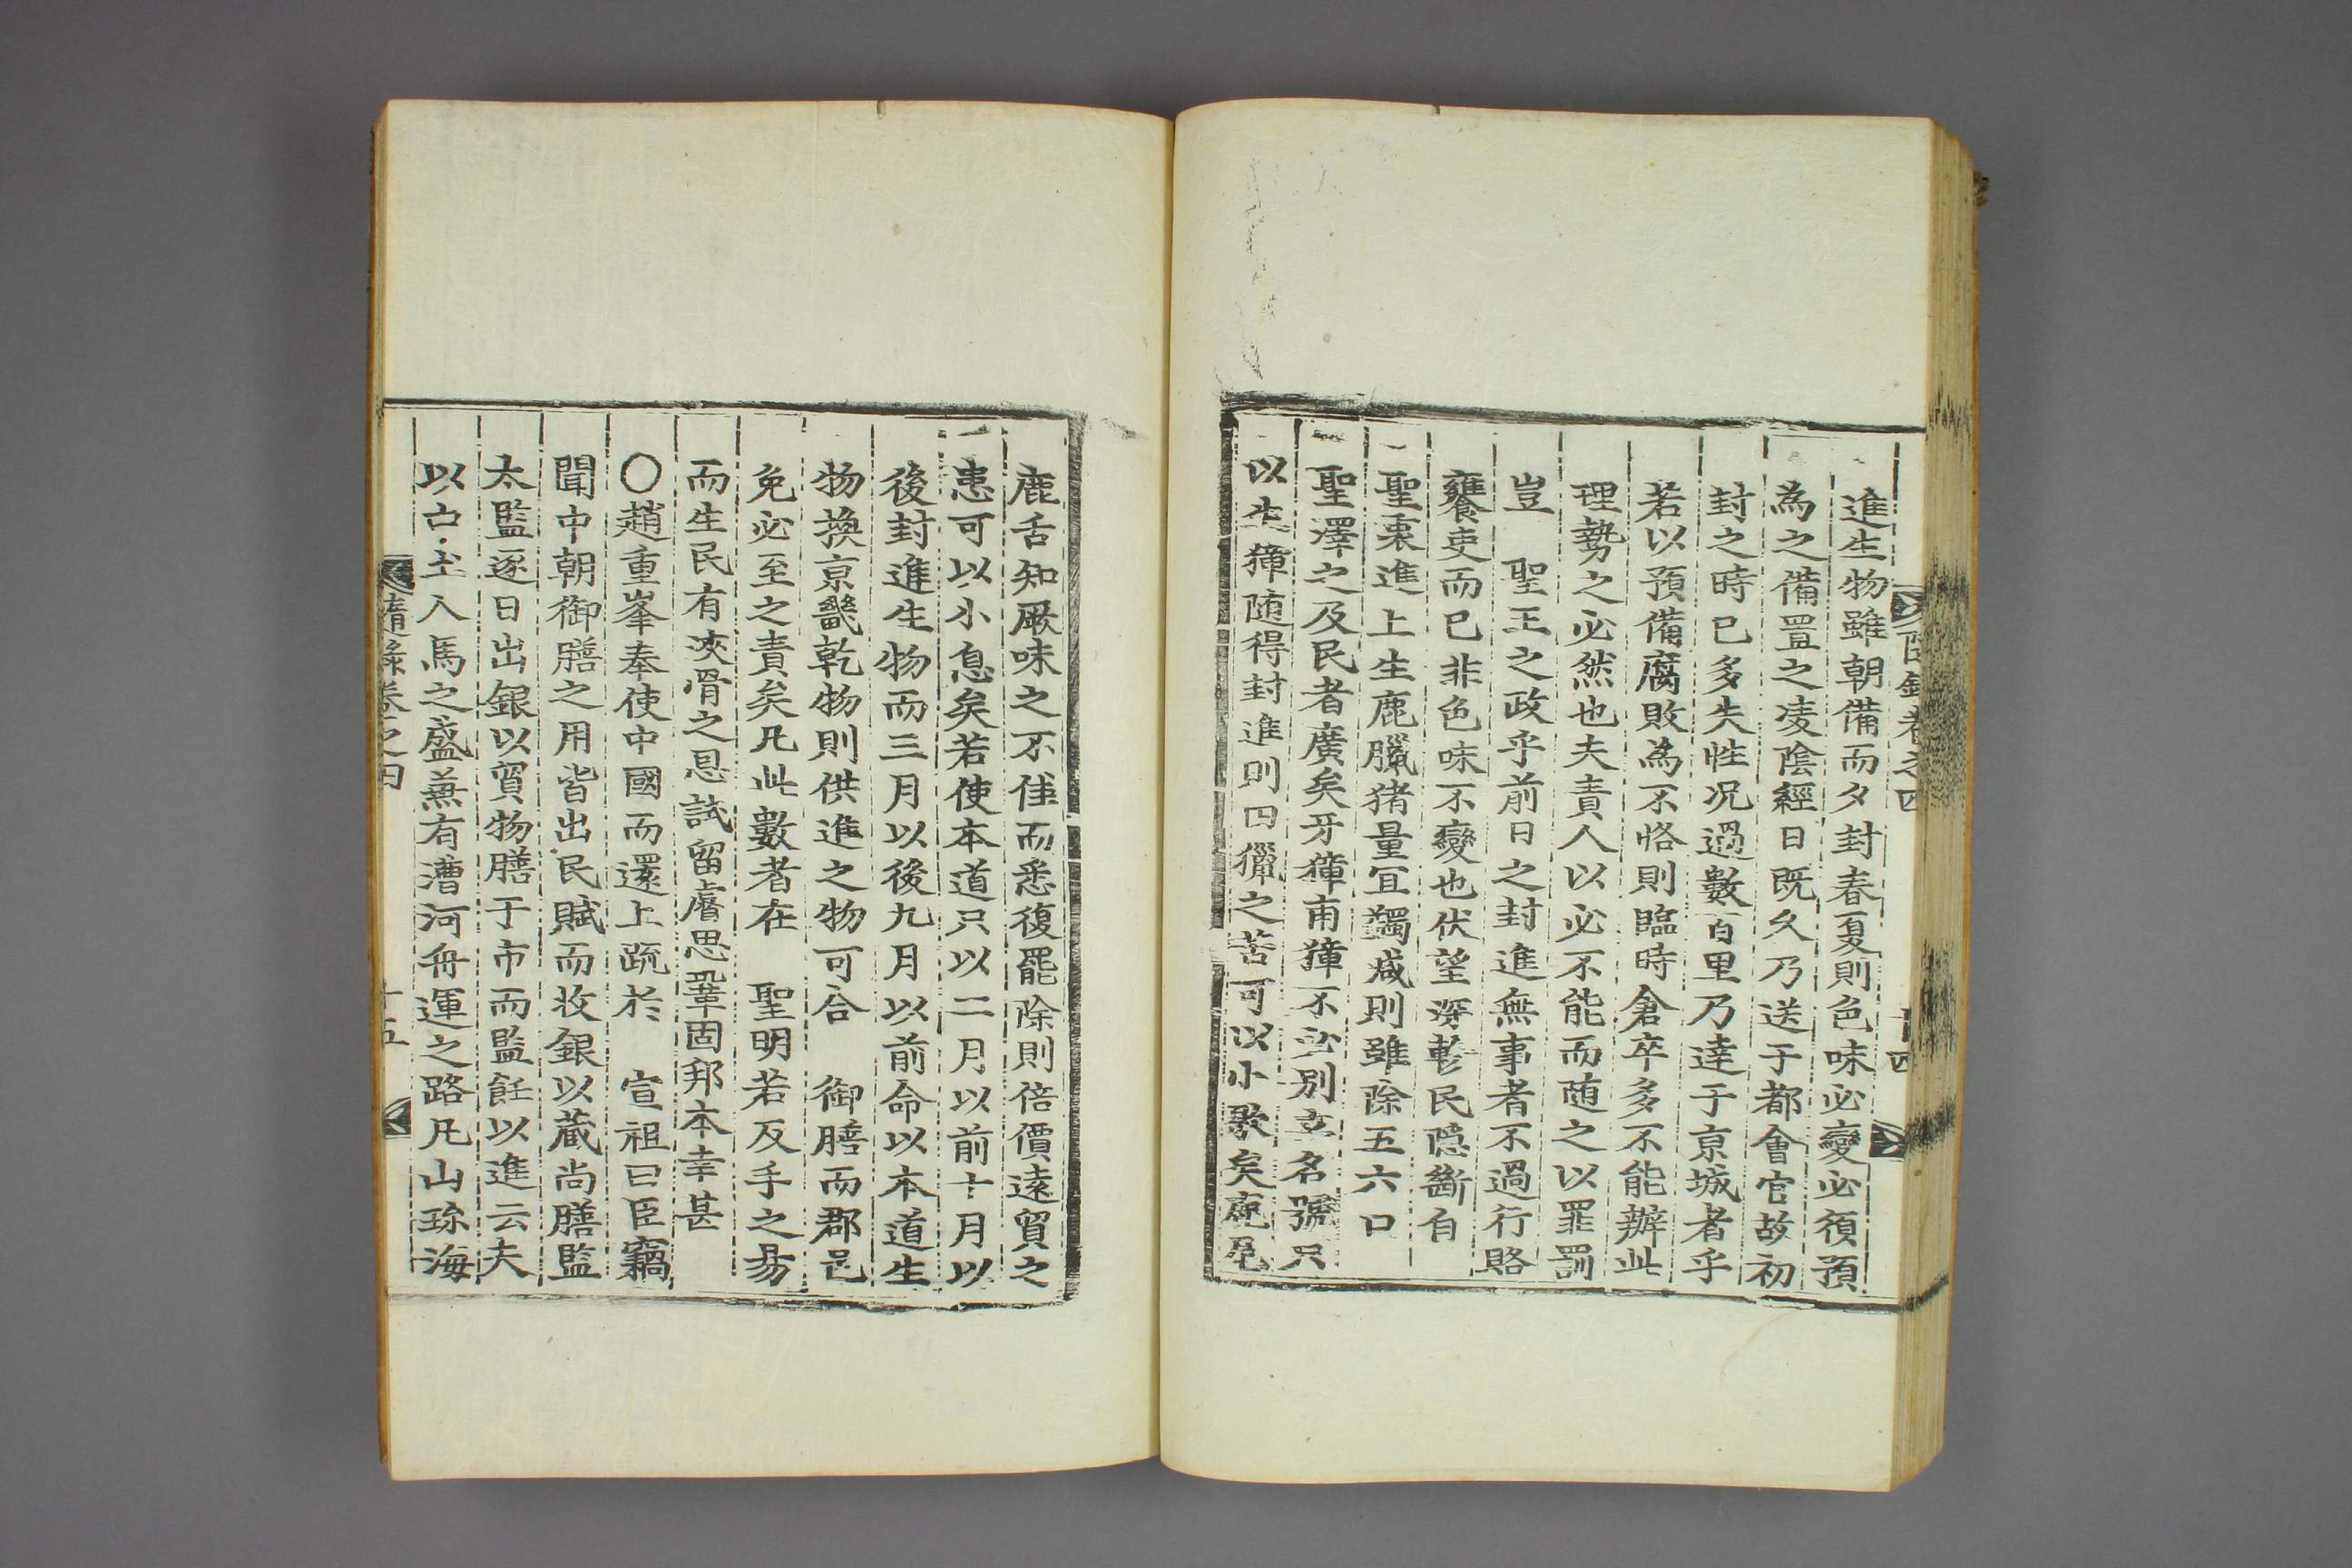 隨錄卷之四
十四
進生物雖朝備而夕封春夏則色味必變必須預
為之備置之凌陰經日既久乃送于都會官故初
封之時已多失性况過數百里乃達于京城者乎
若以預備腐敗為不恪則臨時倉卒多不能辦此
理勢之必然也夫責人以必不能而随之以罪罰
豈 聖王之政乎前日之封進無事者不過行賂
饔吏而已非色味不變也伏望深軫民隱斷自
聖衷進上生鹿臘猪量宜蠲减則雖除五六口
聖澤之及民者廣矣牙獐甫獐不必別立名號只
以生獐随得封進則四獵之苦可以小歇矣鹿尾
鹿舌知厥味之不佳而悉復罷除則倍價遠貿之
患可以小息矣若使本道只以二月以前十月以
後封進生物而三月以後九月以前命以本道生
物換京畿乾物則供進之物可合 御膳而郡邑
免必至之責矣凡此數者在 聖明若反手之易
而生民有浹骨之恩試留睿思鞏固邦本幸甚
○趙重峯奉使中國而還上疏於 宣祖曰臣竊
聞中朝御膳之用皆出民賦而收銀以藏尚膳監
太監逐日出銀以貿物膳于市而監飪以進云夫
以 土入馬之盛兼有漕河舟運之路凡山珍海
隨錄卷之四
十五